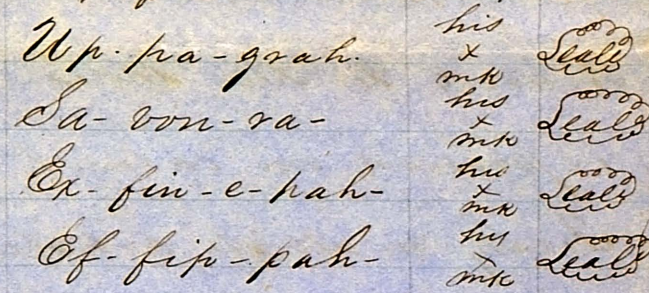 Up-pa-grah. his x mk Seal
Sa-von-ra- his x mk Seal
Ex-fin-e-pah- his x mk Seal
Ef-fip-pah- his x mk Seal